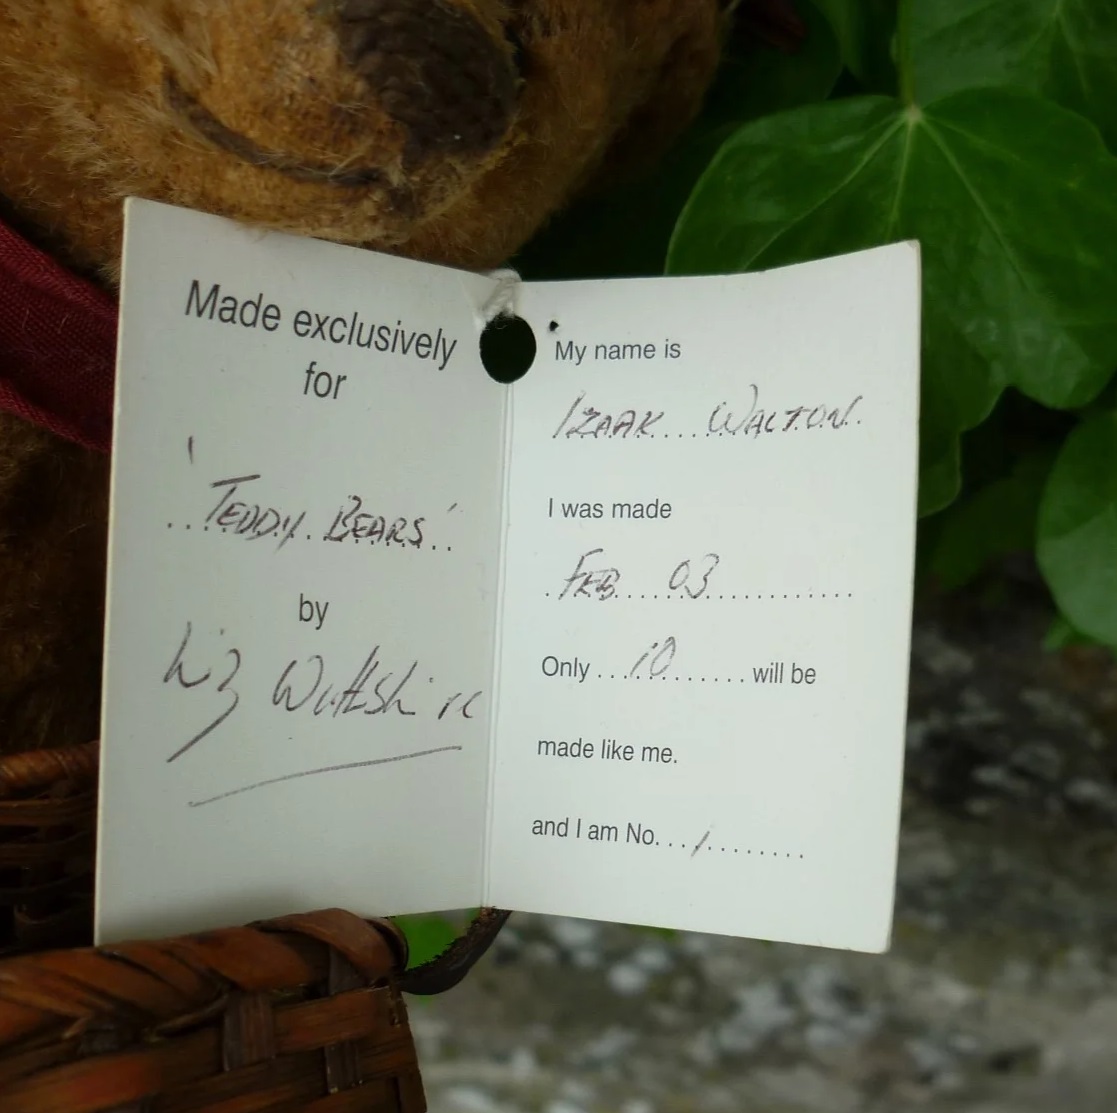 Made exclusively
for
'TEDDY BEARS'
by
Liz Wiltshire
My name is
IZAAK WALTON.
I was made
FEB 03
Only 10 will be
made like me.
and I am No. 1